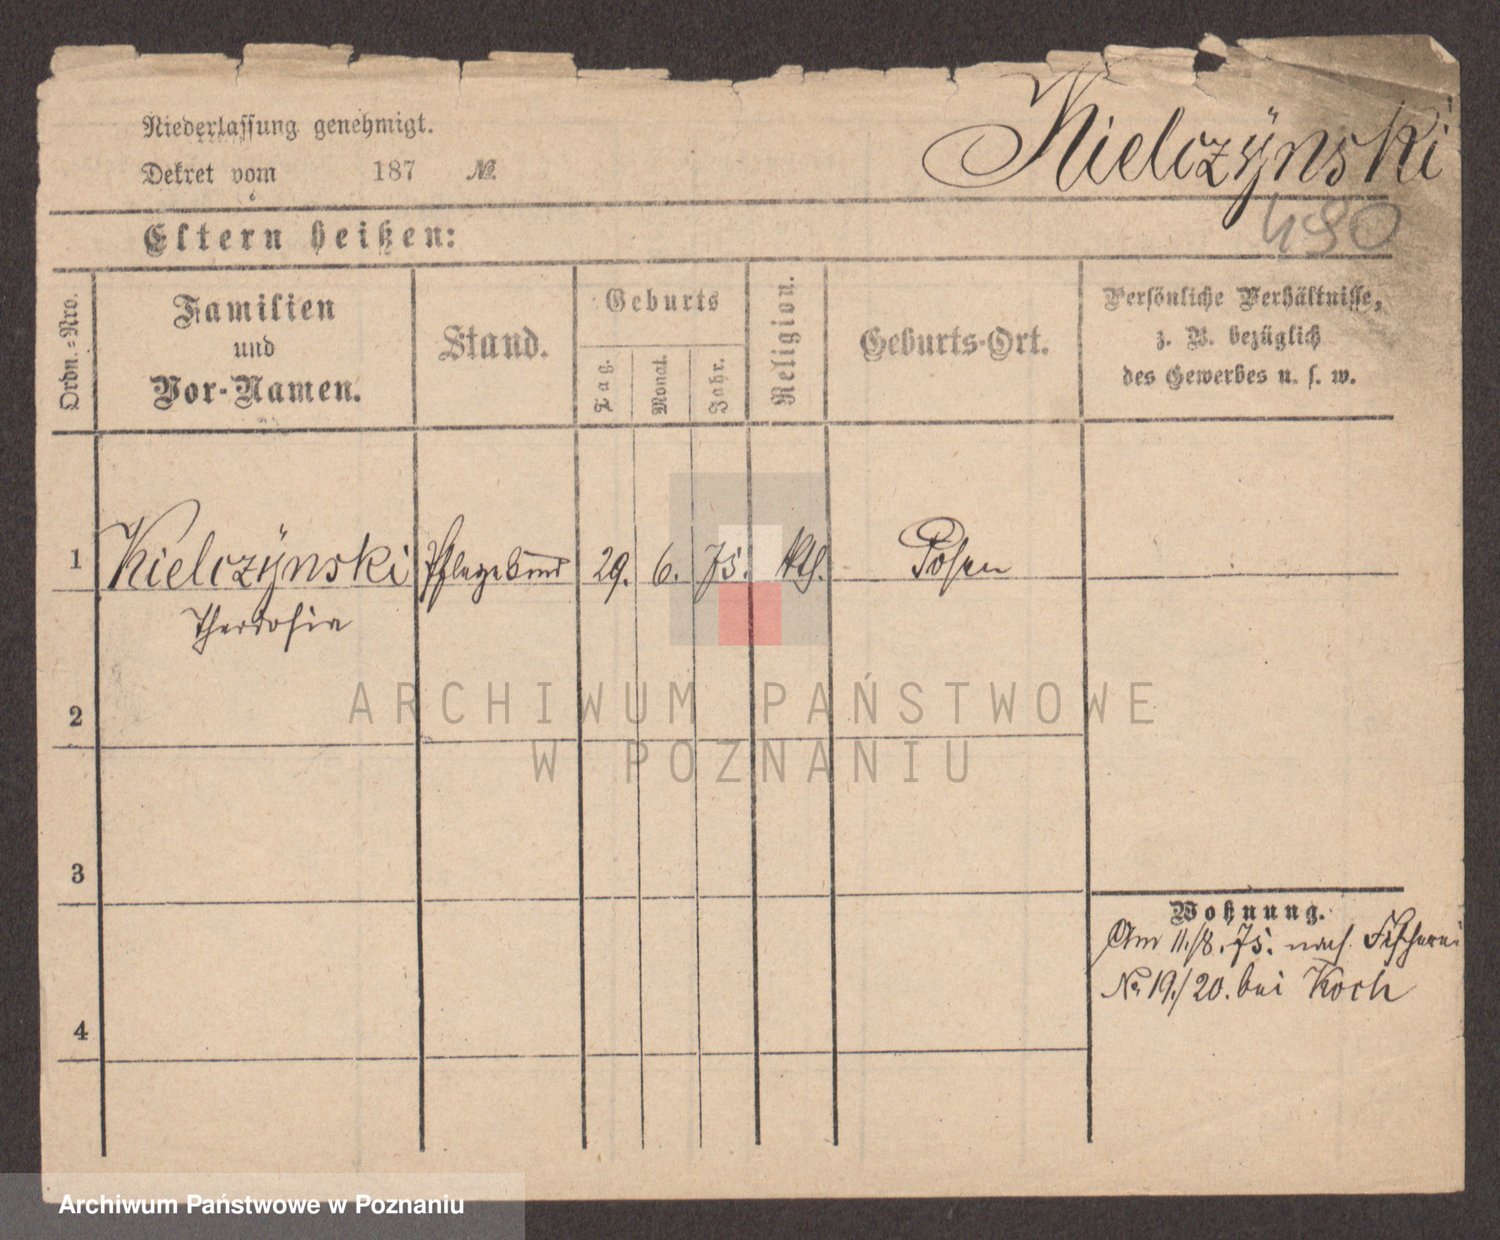 Niederlassung genehmigt.
Dekret vom 187 №
Kielczÿnski
490
Eltern heißen:
Ordn.=Nro.
Familien
und
Vor-Namen.
Stand.
Geburts
Tag.
Monat.
Jahr.
Religion.
Geburts-Ort.
Persönliche Verhältnisse,
z. B. bezüglich
des Gewerbes u. s. w.
1 Kielczÿnski Pflegekind 29. 6. 75. kth. Posen
Theodosia
2
3
4
Wohnung.
Am 11./8. 75. nach Fischerei
No 19./20. bei Koch
ARCHIWUM PAŃSTWOWE
W POZNANIU
Archiwum Państwowe w Poznaniu